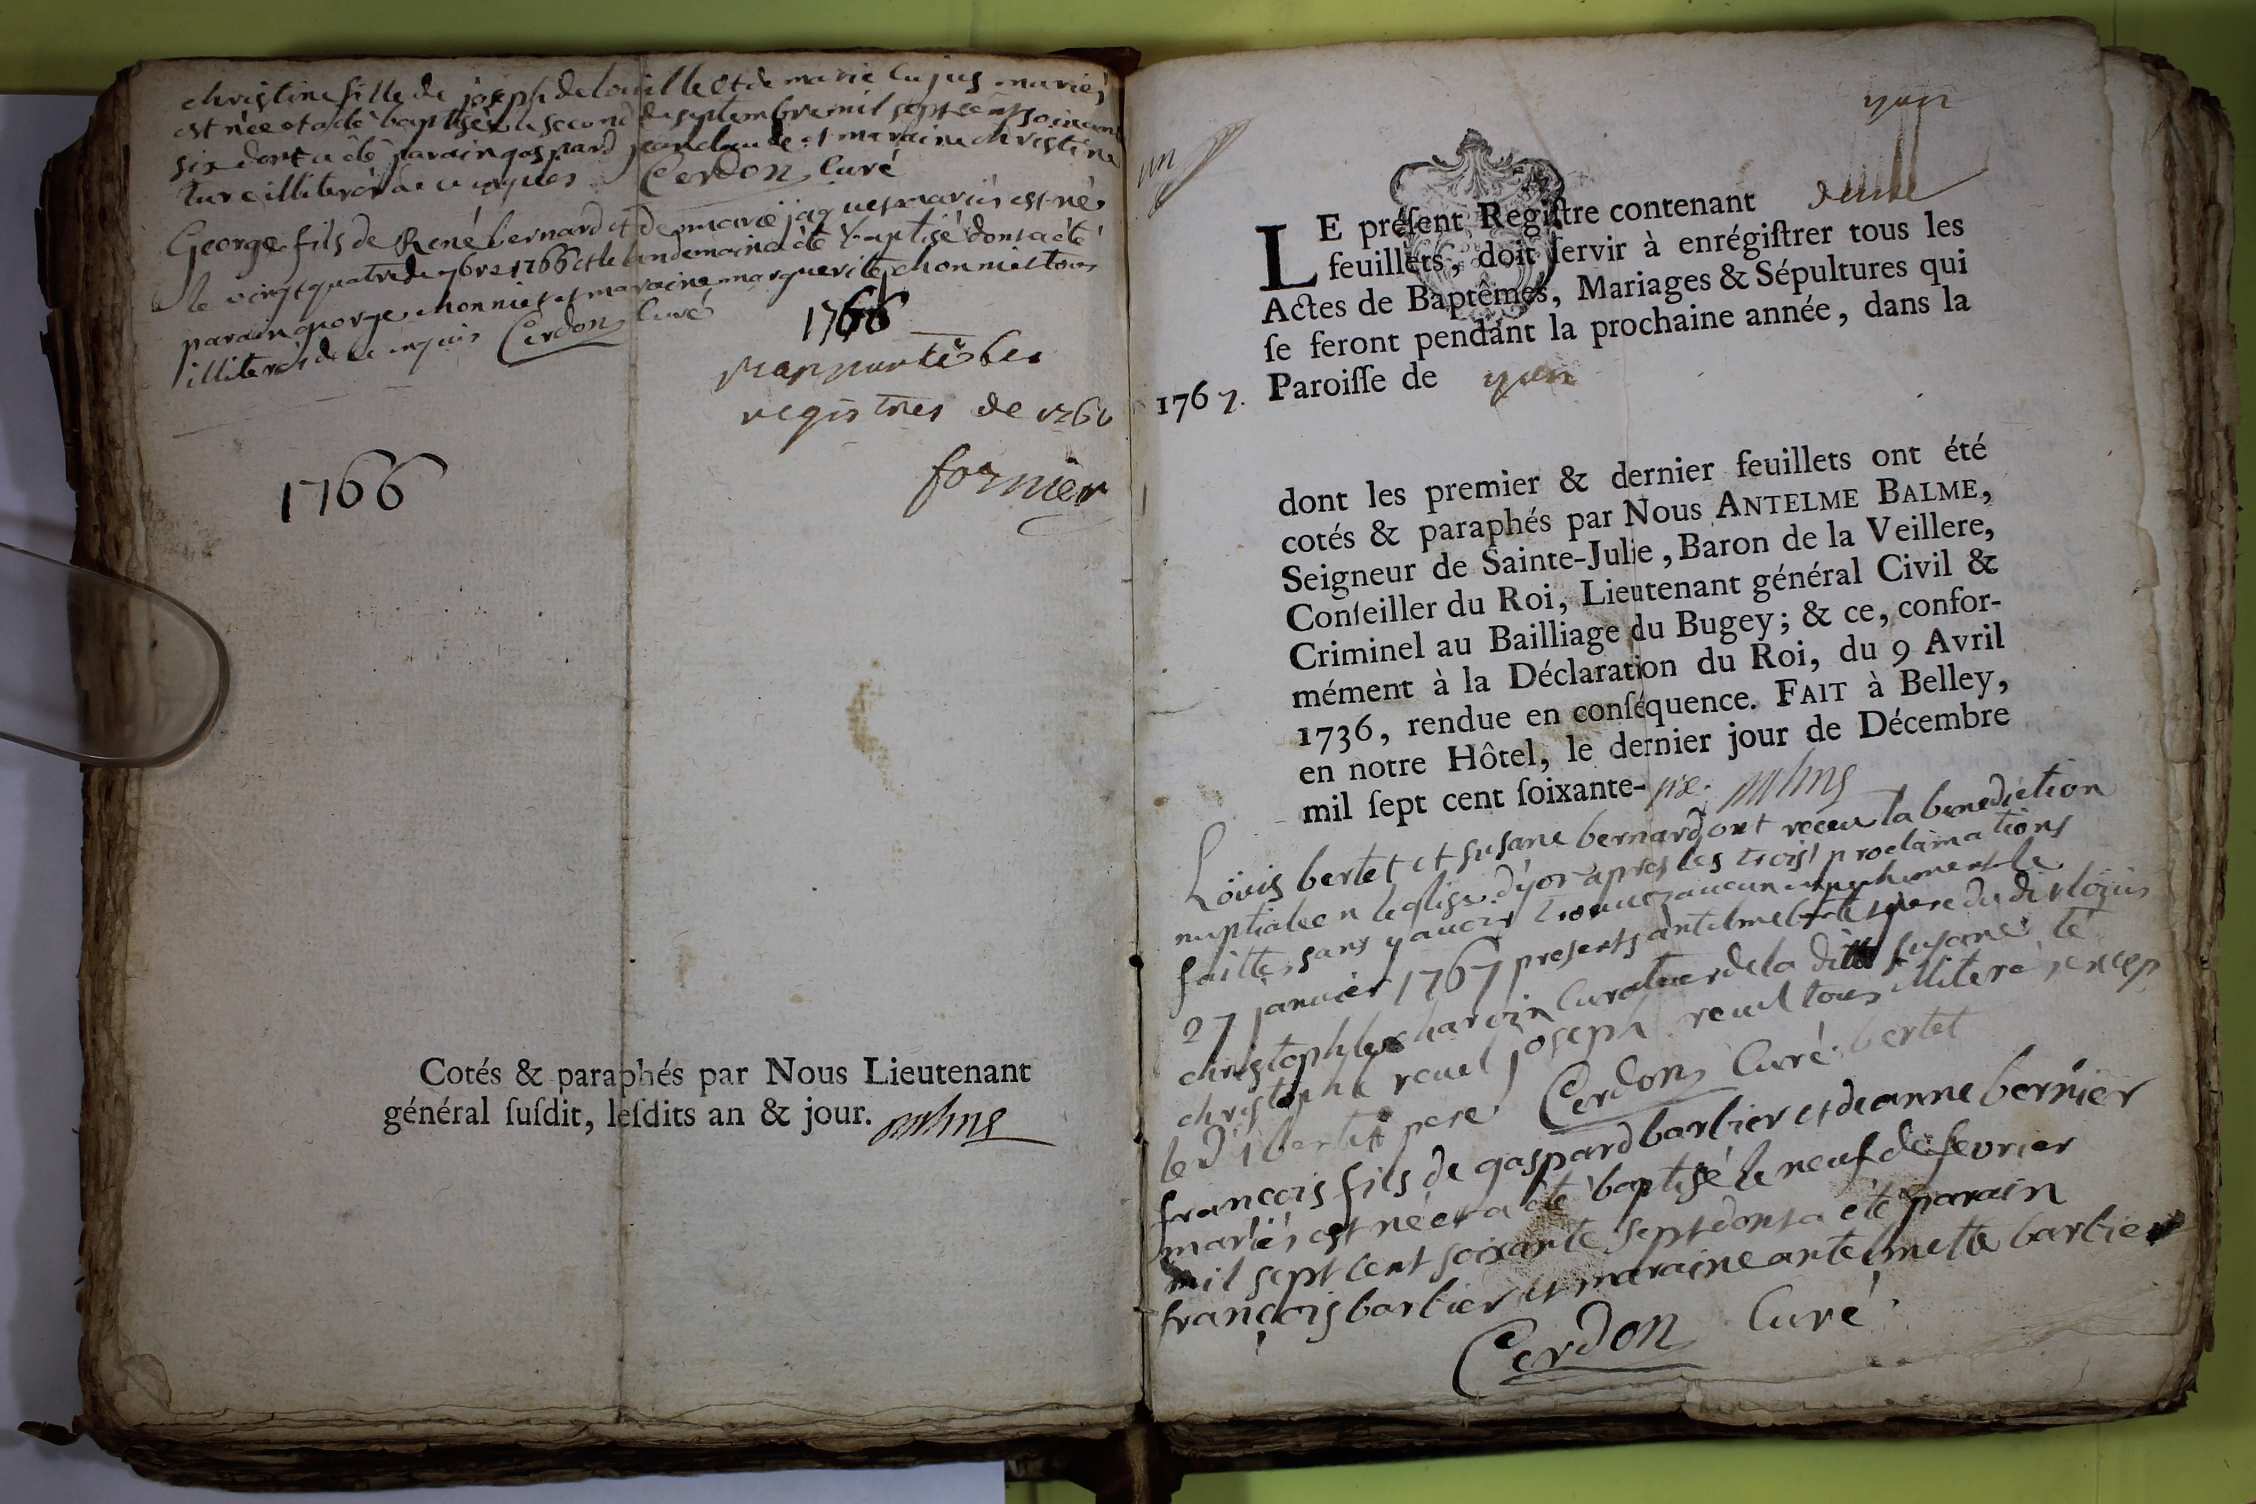 christine fille de joseph delouille et de marie lujus mariés
est née et a été baptisée le second de septembre mil sept cent soixante
six dont a été parain gaspard jean claude et maraine christine
ture illiterés de ce enquis Cerdon Curé
George fils de René bernard et de marie jaques mariés est né
le vingt quatre de 7bre 1766 et le landemain a été baptisé dont a été
parain george monnier et maraine marguerite monnier tous
illiterés de ce enquis Cerdon Curé
1766
rapporté les
registres de 1766
fornier
1766
Cotés & paraphés par Nous Lieutenant
général ſuſdit, leſdits an & jour.
un
yon
LE préſent Regiſtre contenant
feuillets, doit ſervir à enrégiſtrer tous les
Actes de Baptêmes, Mariages & Sépultures qui
ſe feront pendant la prochaine année, dans la
1767. Paroiſſe de yon
dont les premier & dernier feuillets ont été
cotés & paraphés par Nous ANTELME BALME,
Seigneur de Sainte-Julie, Baron de la Veillere,
Conſeiller du Roi, Lieutenant général Civil &
Criminel au Bailliage du Bugey; & ce, confor-
mément à la Déclaration du Roi, du 9 Avril
1736, rendue en conſéquence. FAIT à Belley,
en notre Hôtel, le dernier jour de Décembre
mil ſept cent ſoixante-six.
Loüis bertet et susane bernard ont receu la benediction
nuptiale en leglise dyon apres les trois proclamations
faittes sans y avoir trouvez aucun empechement le
27 janvier 1767 presents antelme bertet pere du dit loüis
christophle charvin curateur de la ditte susane
christophe revel joseph revel tous illiterés excep té
le dt bertet pere Cerdon Curé bertet
francois fils de gaspard barbier et de anne bernier
mariés est né et a été baptisé le neuf de fevrier
mil sept cent soixante sept dont a été parain
françois barbier et maraine antelmette barbier
Cerdon Curé